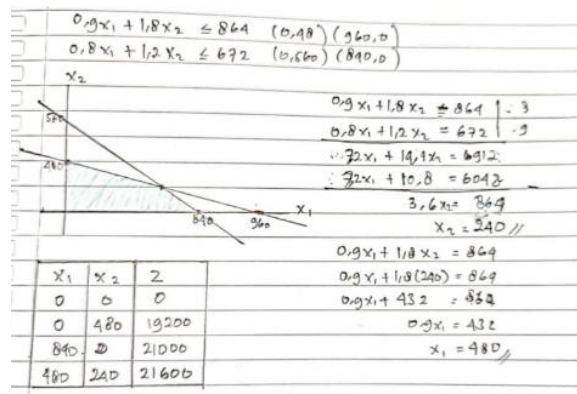 0,9x₁ + 1,8x₂ ≤ 864 (0,48) (960,0)
0,8x₁ + 1,2x₂ ≤ 672 (0,560) (840,0)
x₂
560
480
840
960
x₁
0,9x₁ + 1,8x₂ = 864
0,8x₁ + 1,2x₂ = 672
3,6x₂ = 864
x₂ = 240 //
0,9x₁ + 1,8x₂ = 864
0,9x₁ + 1,8(240) = 864
0,9x₁ + 432 = 864
0,9x₁ = 432
x₁ = 480 //
x₁ x₂ Z
0 0 0
0 480 19200
840 0 21000
480 240 21600